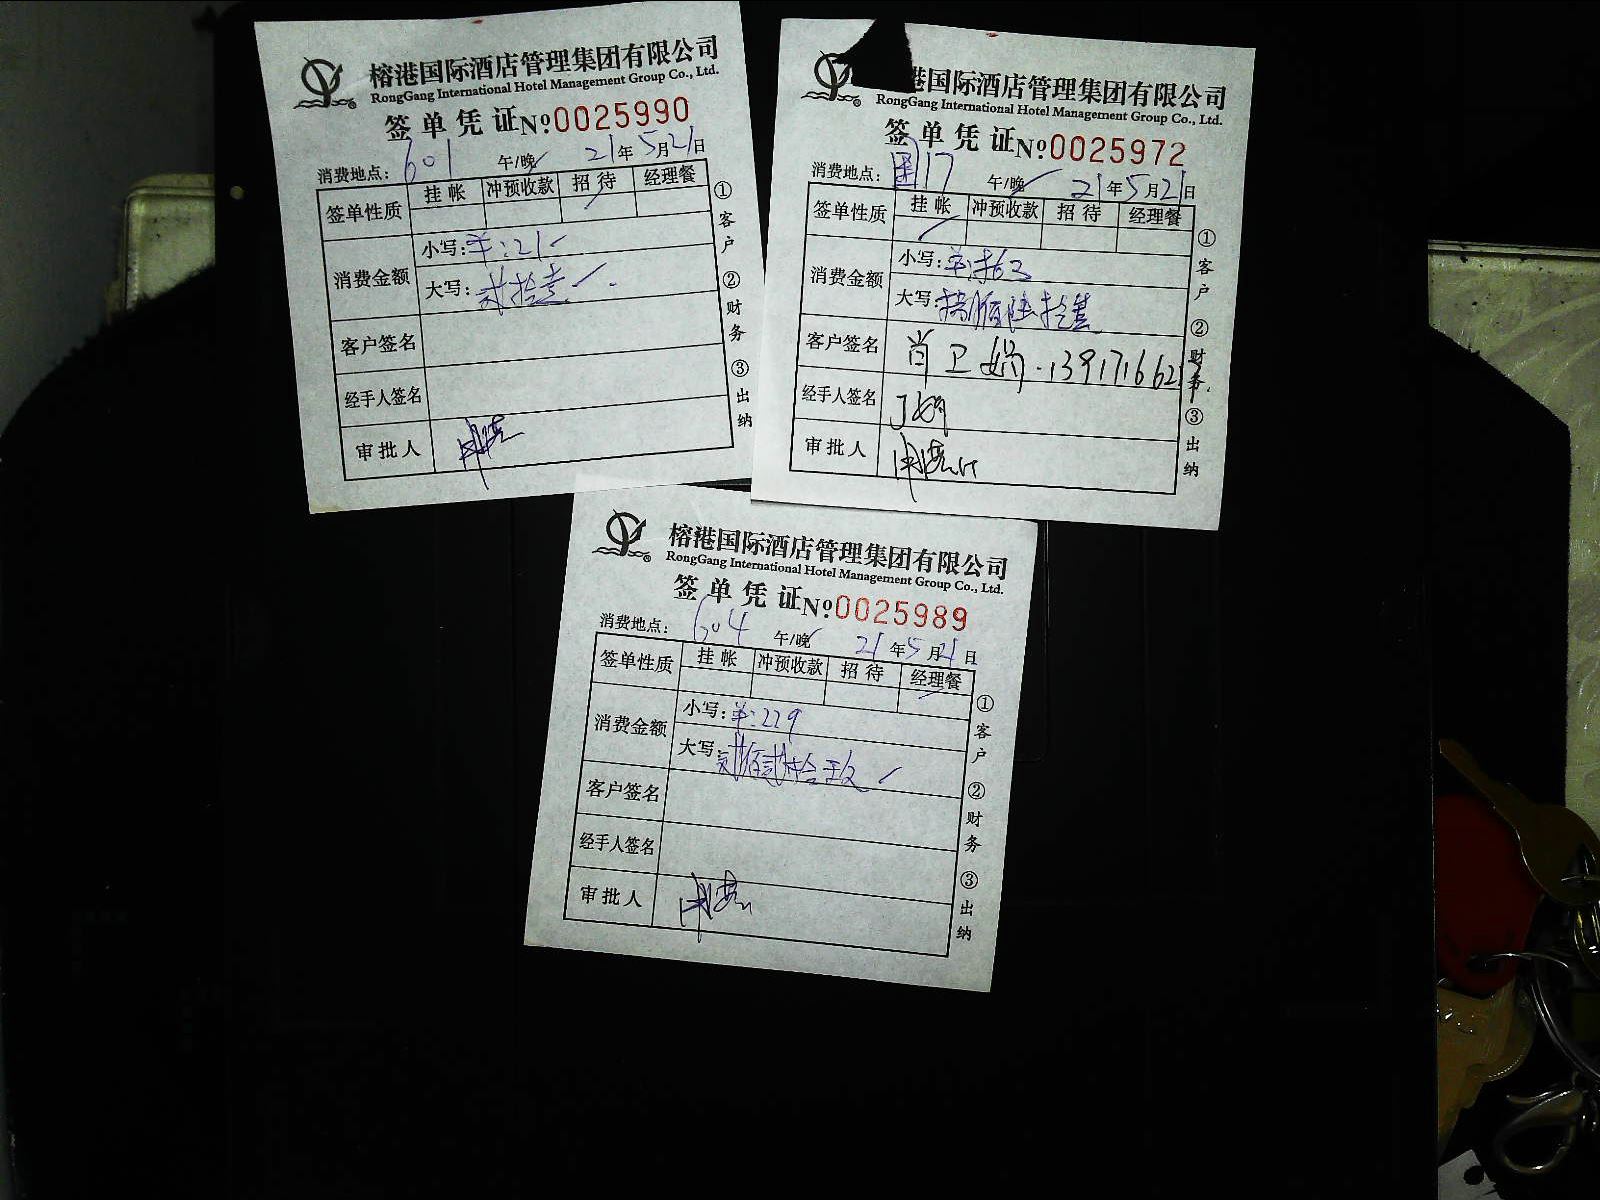 榕港国际酒店管理集团有限公司
RongGang International Hotel Management Group Co., Ltd.
签单凭证 Nº 0025990
消费地点: 601 午/晚 21年5月21日
签单性质 挂帐 冲预收款 招待 经理餐
消费金额 小写: 羊:21
大写: 贰拾壹
客户签名
经手人签名
审批人
① 客户 ② 财务 ③ 出纳
港国际酒店管理集团有限公司
RongGang International Hotel Management Group Co., Ltd.
签单凭证 Nº 0025972
消费地点: 17 午/晚 21年5月21日
签单性质 挂帐 冲预收款 招待 经理餐
消费金额 小写:
大写:
客户签名 肖卫娟·139171662
经手人签名
审批人
① 客户 ② 财务 ③ 出纳
榕港国际酒店管理集团有限公司
RongGang International Hotel Management Group Co., Ltd.
签单凭证 Nº 0025989
消费地点: 604 午/晚 21年5月21日
签单性质 挂帐 冲预收款 招待 经理餐
消费金额 小写: 羊:229
大写: 贰佰贰拾玖
客户签名
经手人签名
审批人
① 客户 ② 财务 ③ 出纳